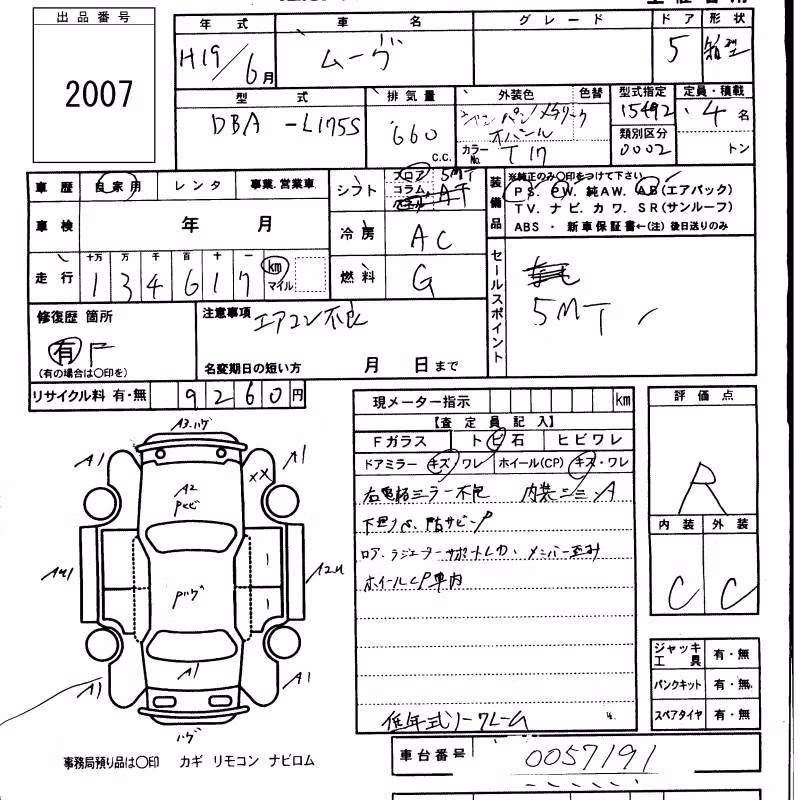 出品番号
2007
年式 車名 グレード ドア 形状
H19/6月 ムーヴ 5 箱型
型式 排気量 外装色 色替 型式指定 定員・積載
DBA-L175S 660 c.c. シャンパンメタリックオパール 15492 4名
カラーNo. T17 類別区分 0002 トン
車歴 自家用 レンタ 事業.営業車
シフト フロア コラム 5MT AT
装備品 ※純正のみ○印をつけて下さい
PS. PW. 純AW. AB(エアバック)
TV. ナビ. カワ. SR(サンルーフ)
ABS ・ 新車保証書←(注) 後日送りのみ
車検 年 月
冷房 AC
走行 十万 万 千 百 十 一
134617 km マイル
燃料 G
セールスポイント
5MT
修復歴 箇所
有
(有の場合は○印を)
注意事項 エアコン不良
名変期日の短い方 月 日まで
リサイクル料 有・無 9260円
現メーター指示 km
【査定員記入】
Fガラス トビ石 ヒビワレ
ドアミラー キズ・ワレ ホイール(CP) キズ・ワレ
右電格ミラー不良 内装シミ・A
下廻り
ロア、ラジエーターサポート メンバー
ホイールCP車内
低年式ノークレーム
評価点
R
内装 外装
C C
ジャッキ工具 有・無
パンクキット 有・無
スペアタイヤ 有・無
A3.ハゲ
A1 A1
XX
A2
Pサビ
Pハゲ
A1
A1 A1
ハゲ
事務局預り品は○印 カギ リモコン ナビロム
車台番号 0057191